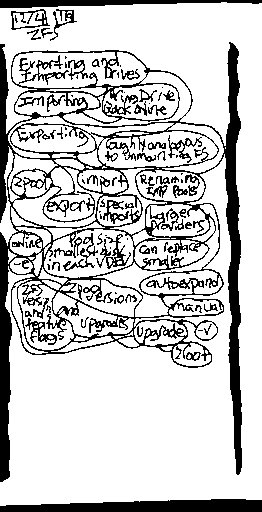 12/4
ZFS
Exporting and
Importing Drives
Importing
Bring Drive
Back online
Exporting
roughly analogous
to unmounting FS
zpool
import
Renaming
Imp Pools
export
special
imports
Larger
Providers
online
-e
Pool size
smallest disk
in each VDEV
Can replace
smaller
autoexpand
manual
ZFS
Versions
and
feature
flags
Zpool
Versions
and
Upgrades
upgrade
-v
zloot